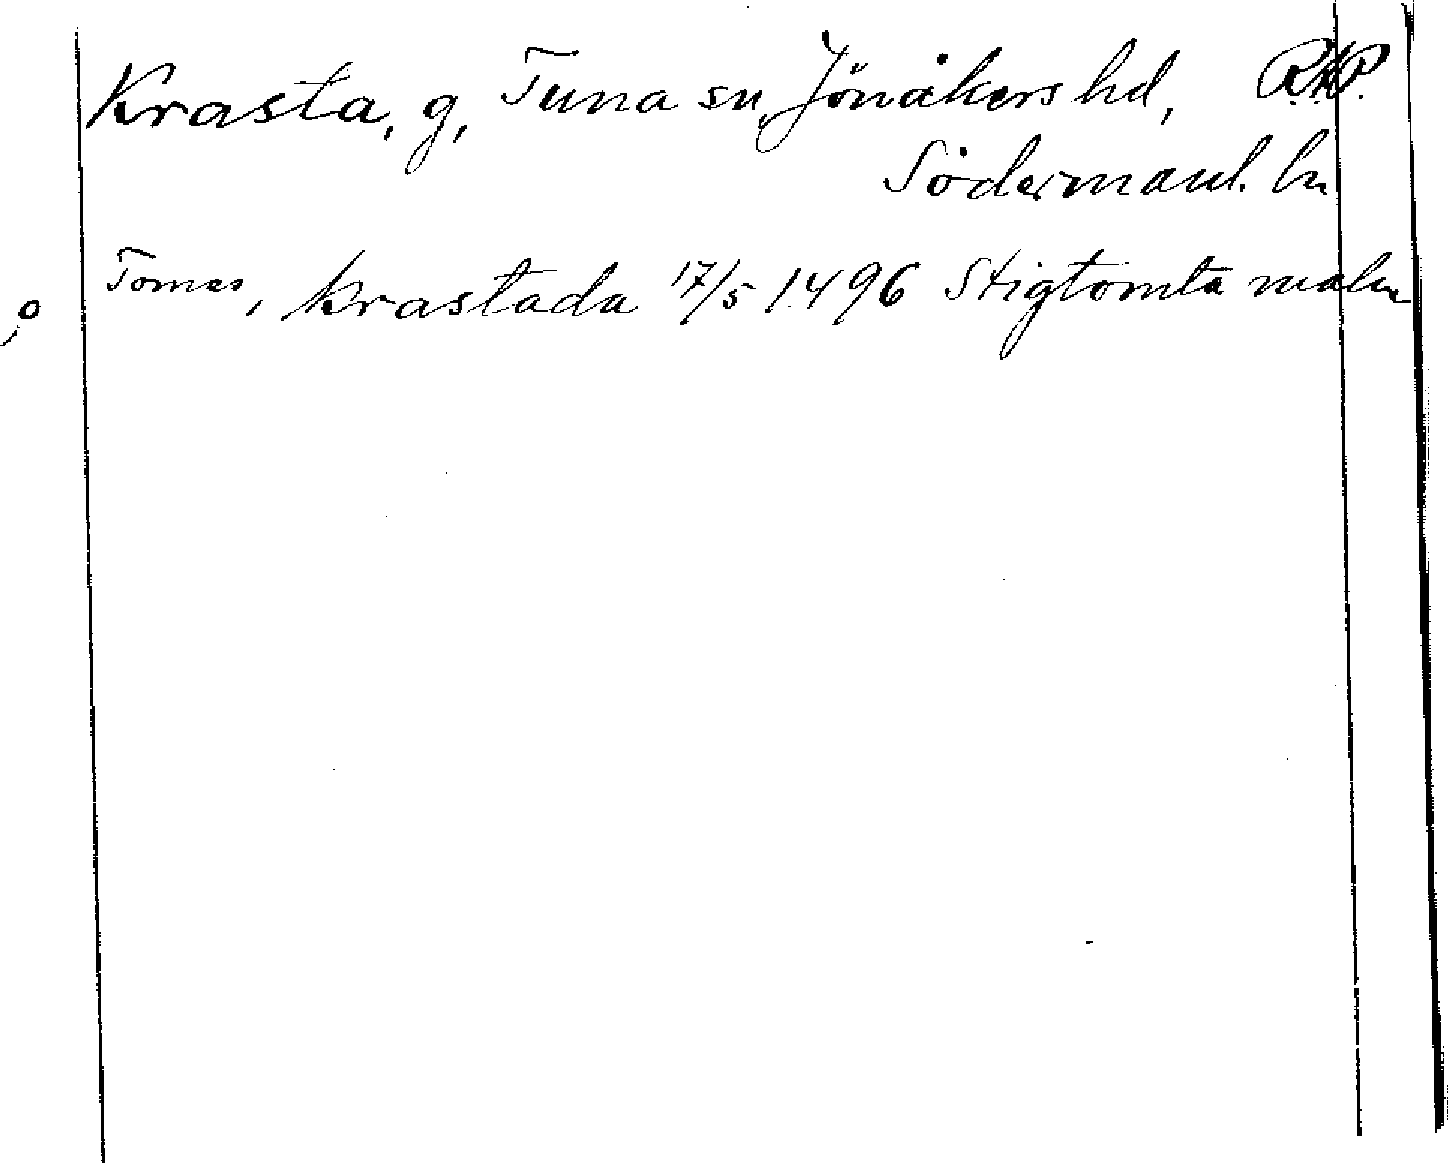 Krasta, g, Tuna sn, Jönåkers hd, RAP.
Södermanl. ln
Tomas, krastada 17/5 1496 Stigtomta malm